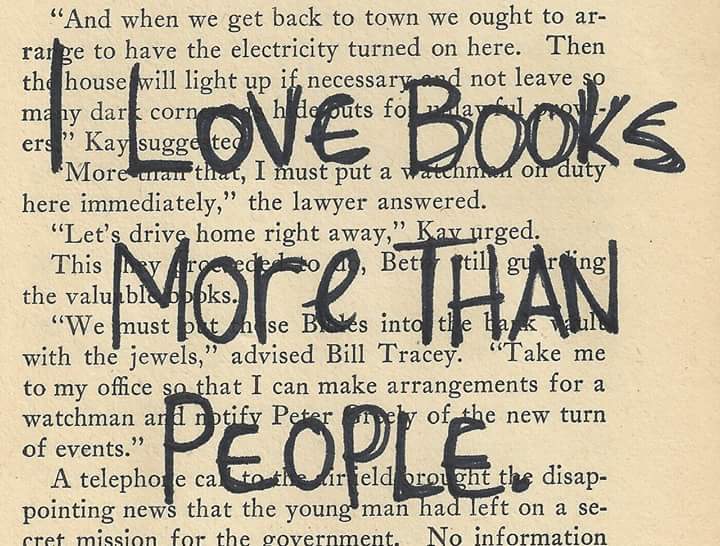 I LOVE BOOKS
MORE THAN
PEOPLE.
“And when we get back to town we ought to ar-
range to have the electricity turned on here. Then
the house will light up if necessary and not leave so
many dark hideouts for unlawful prowl-
ers” Kay suggested.
“More than that, I must put a watchman on duty
here immediately,” the lawyer answered.
“Let’s drive home right away,” Kay urged.
This they proceeded to do, Betty still guarding
the valuable books.
“We must put those Bibles into the bank vault
with the jewels,” advised Bill Tracey. “Take me
to my office so that I can make arrangements for a
watchman and notify Peter of the new turn
of events.”
A telephone call to the airfield brought the disap-
pointing news that the young man had left on a se-
cret mission for the government. No information